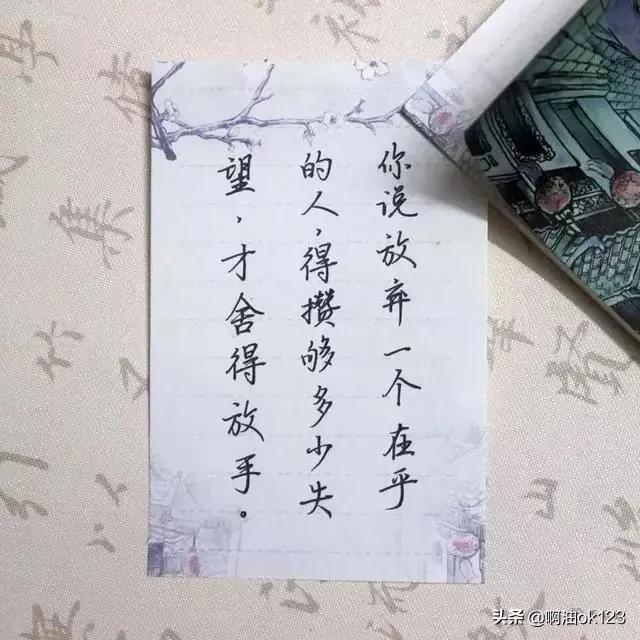 你说放弃一个在乎
的人，得攒够多少失
望，才舍得放手。
头条 @啊油ok123